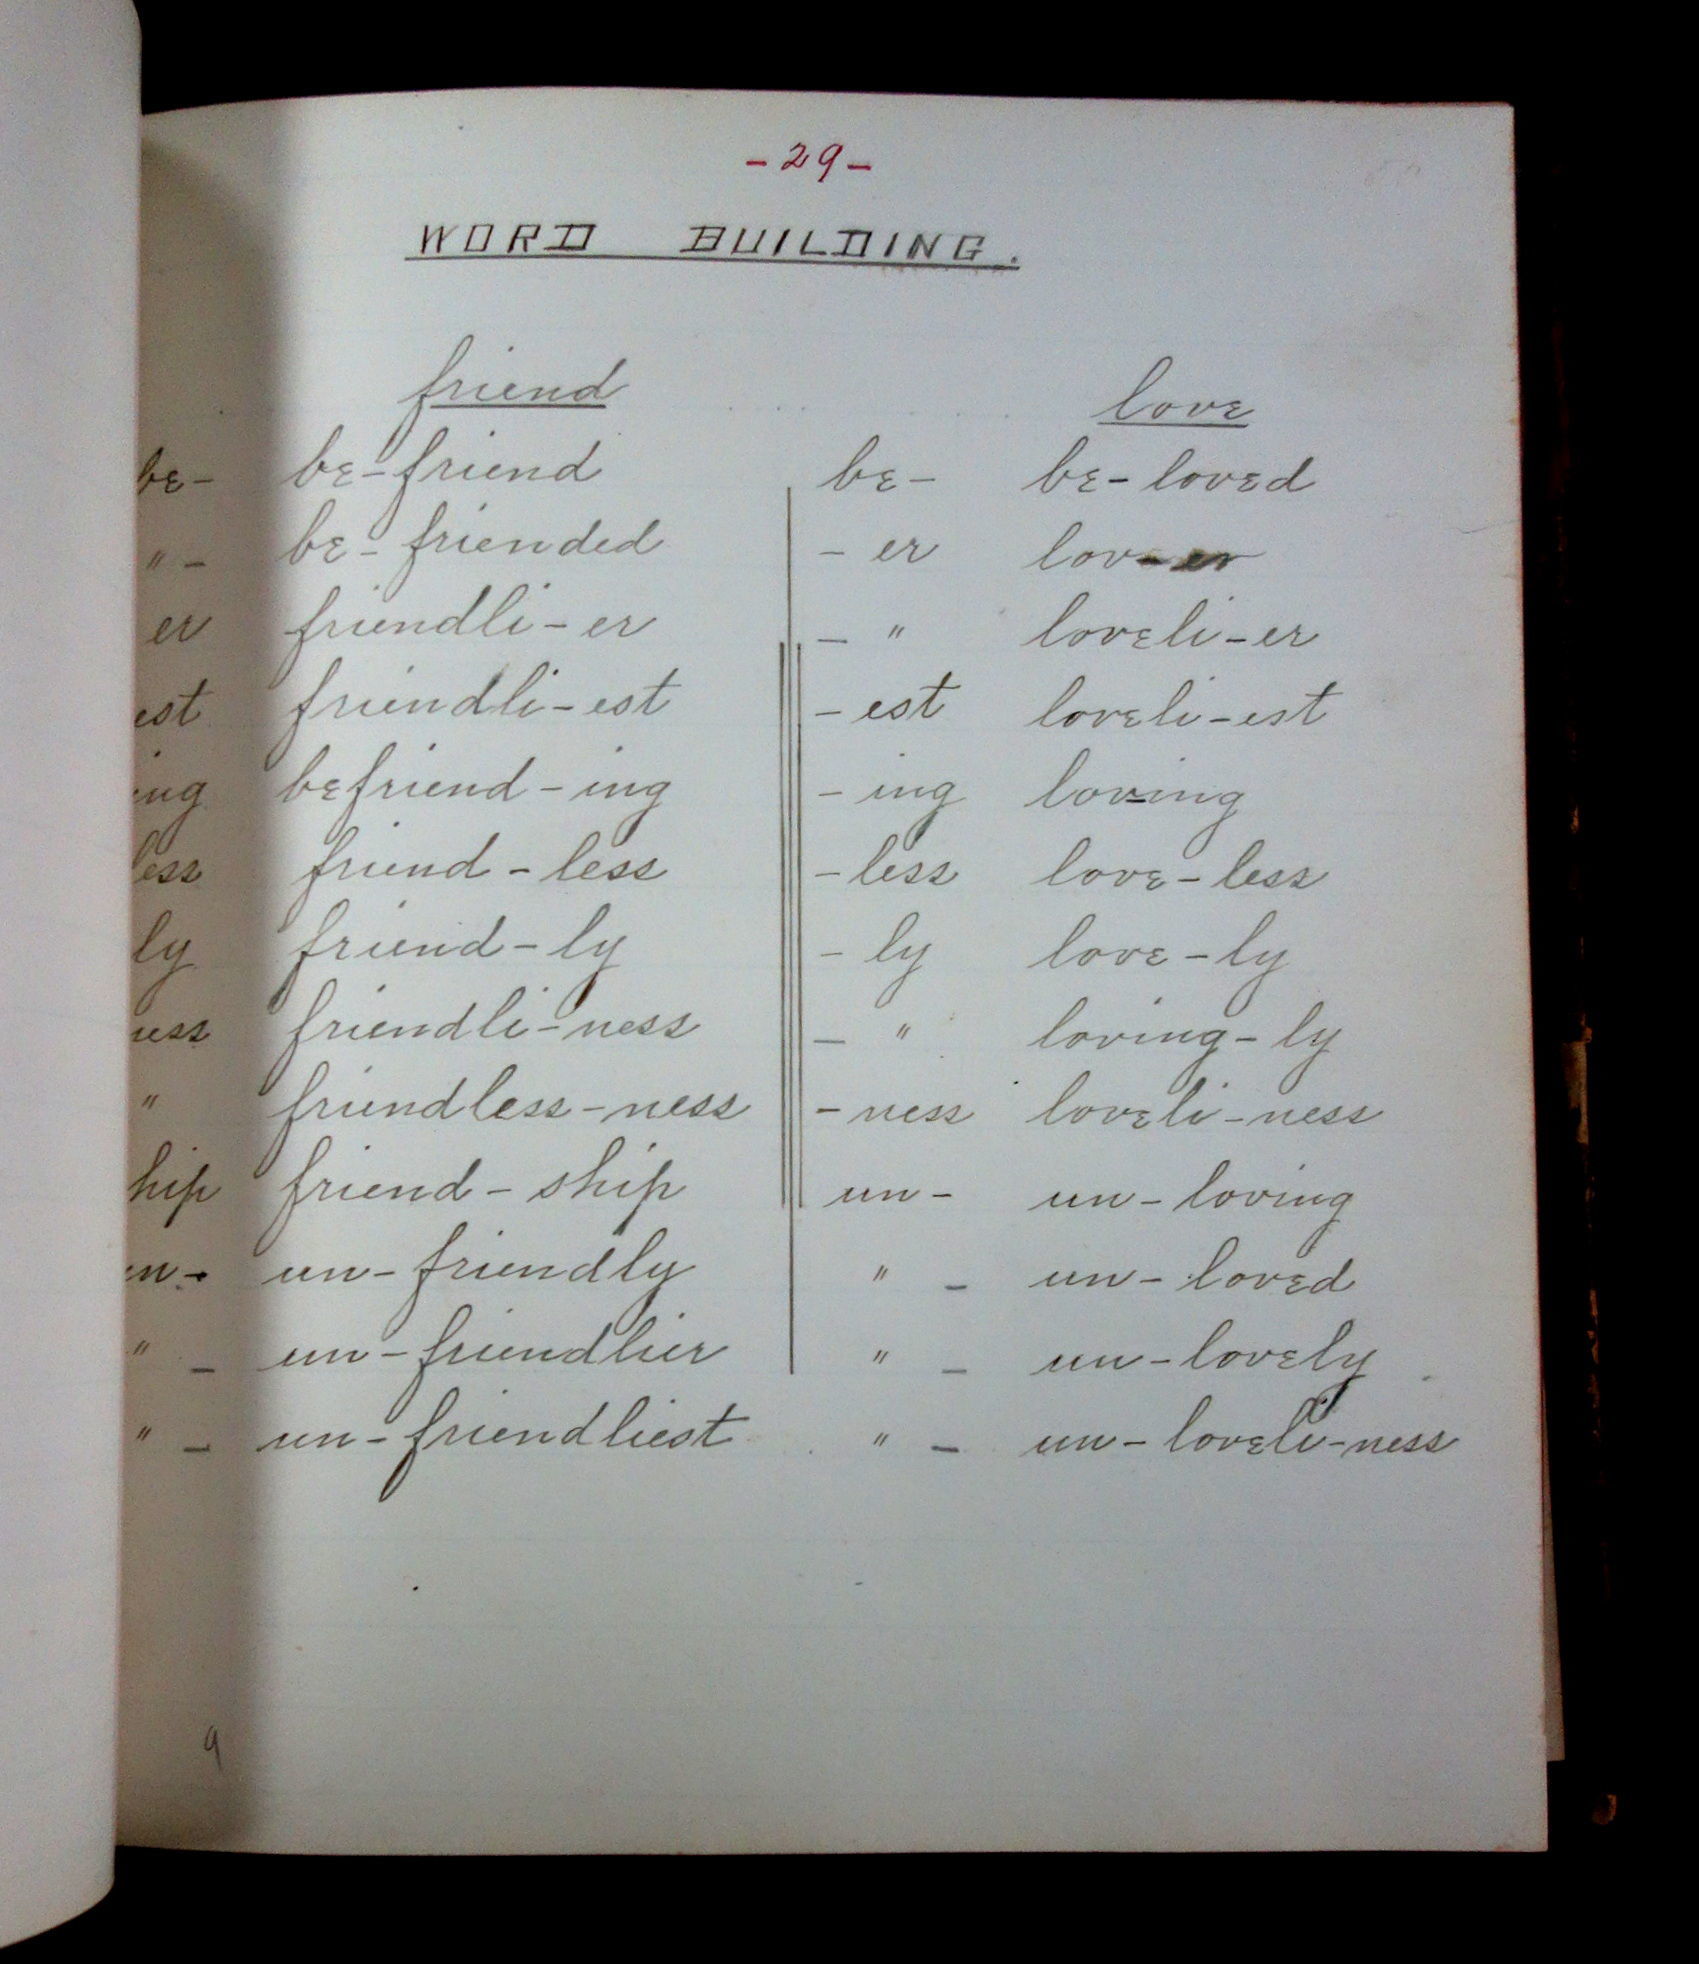 - 29 -
WORD BUILDING.
friend love
be- be-friend be- be-loved
" - be-friended - er lov-er
er friendli-er - " loveli-er
est friendli-est - est loveli-est
ing befriend-ing - ing loving
less friend-less - less love-less
ly friend-ly - ly love-ly
ness friendli-ness - " loving-ly
" friendless-ness - ness loveli-ness
hip friend-ship un- un-loving
un- un-friendly " - un-loved
" - un-friendlier " - un-lovely
" - un-friendliest " - un-loveli-ness
9